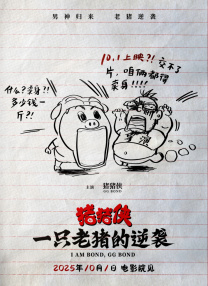 男神归来 老猪逆袭
10.1上映?!交不了
片,咱俩都得
卖身!!!!
什么?卖身?!
多少钱一
斤?!
主演 猪猪侠
GG BOND
猪猪侠
一只老猪的逆袭
I AM BOND, GG BOND
2025年10月1日 电影院见